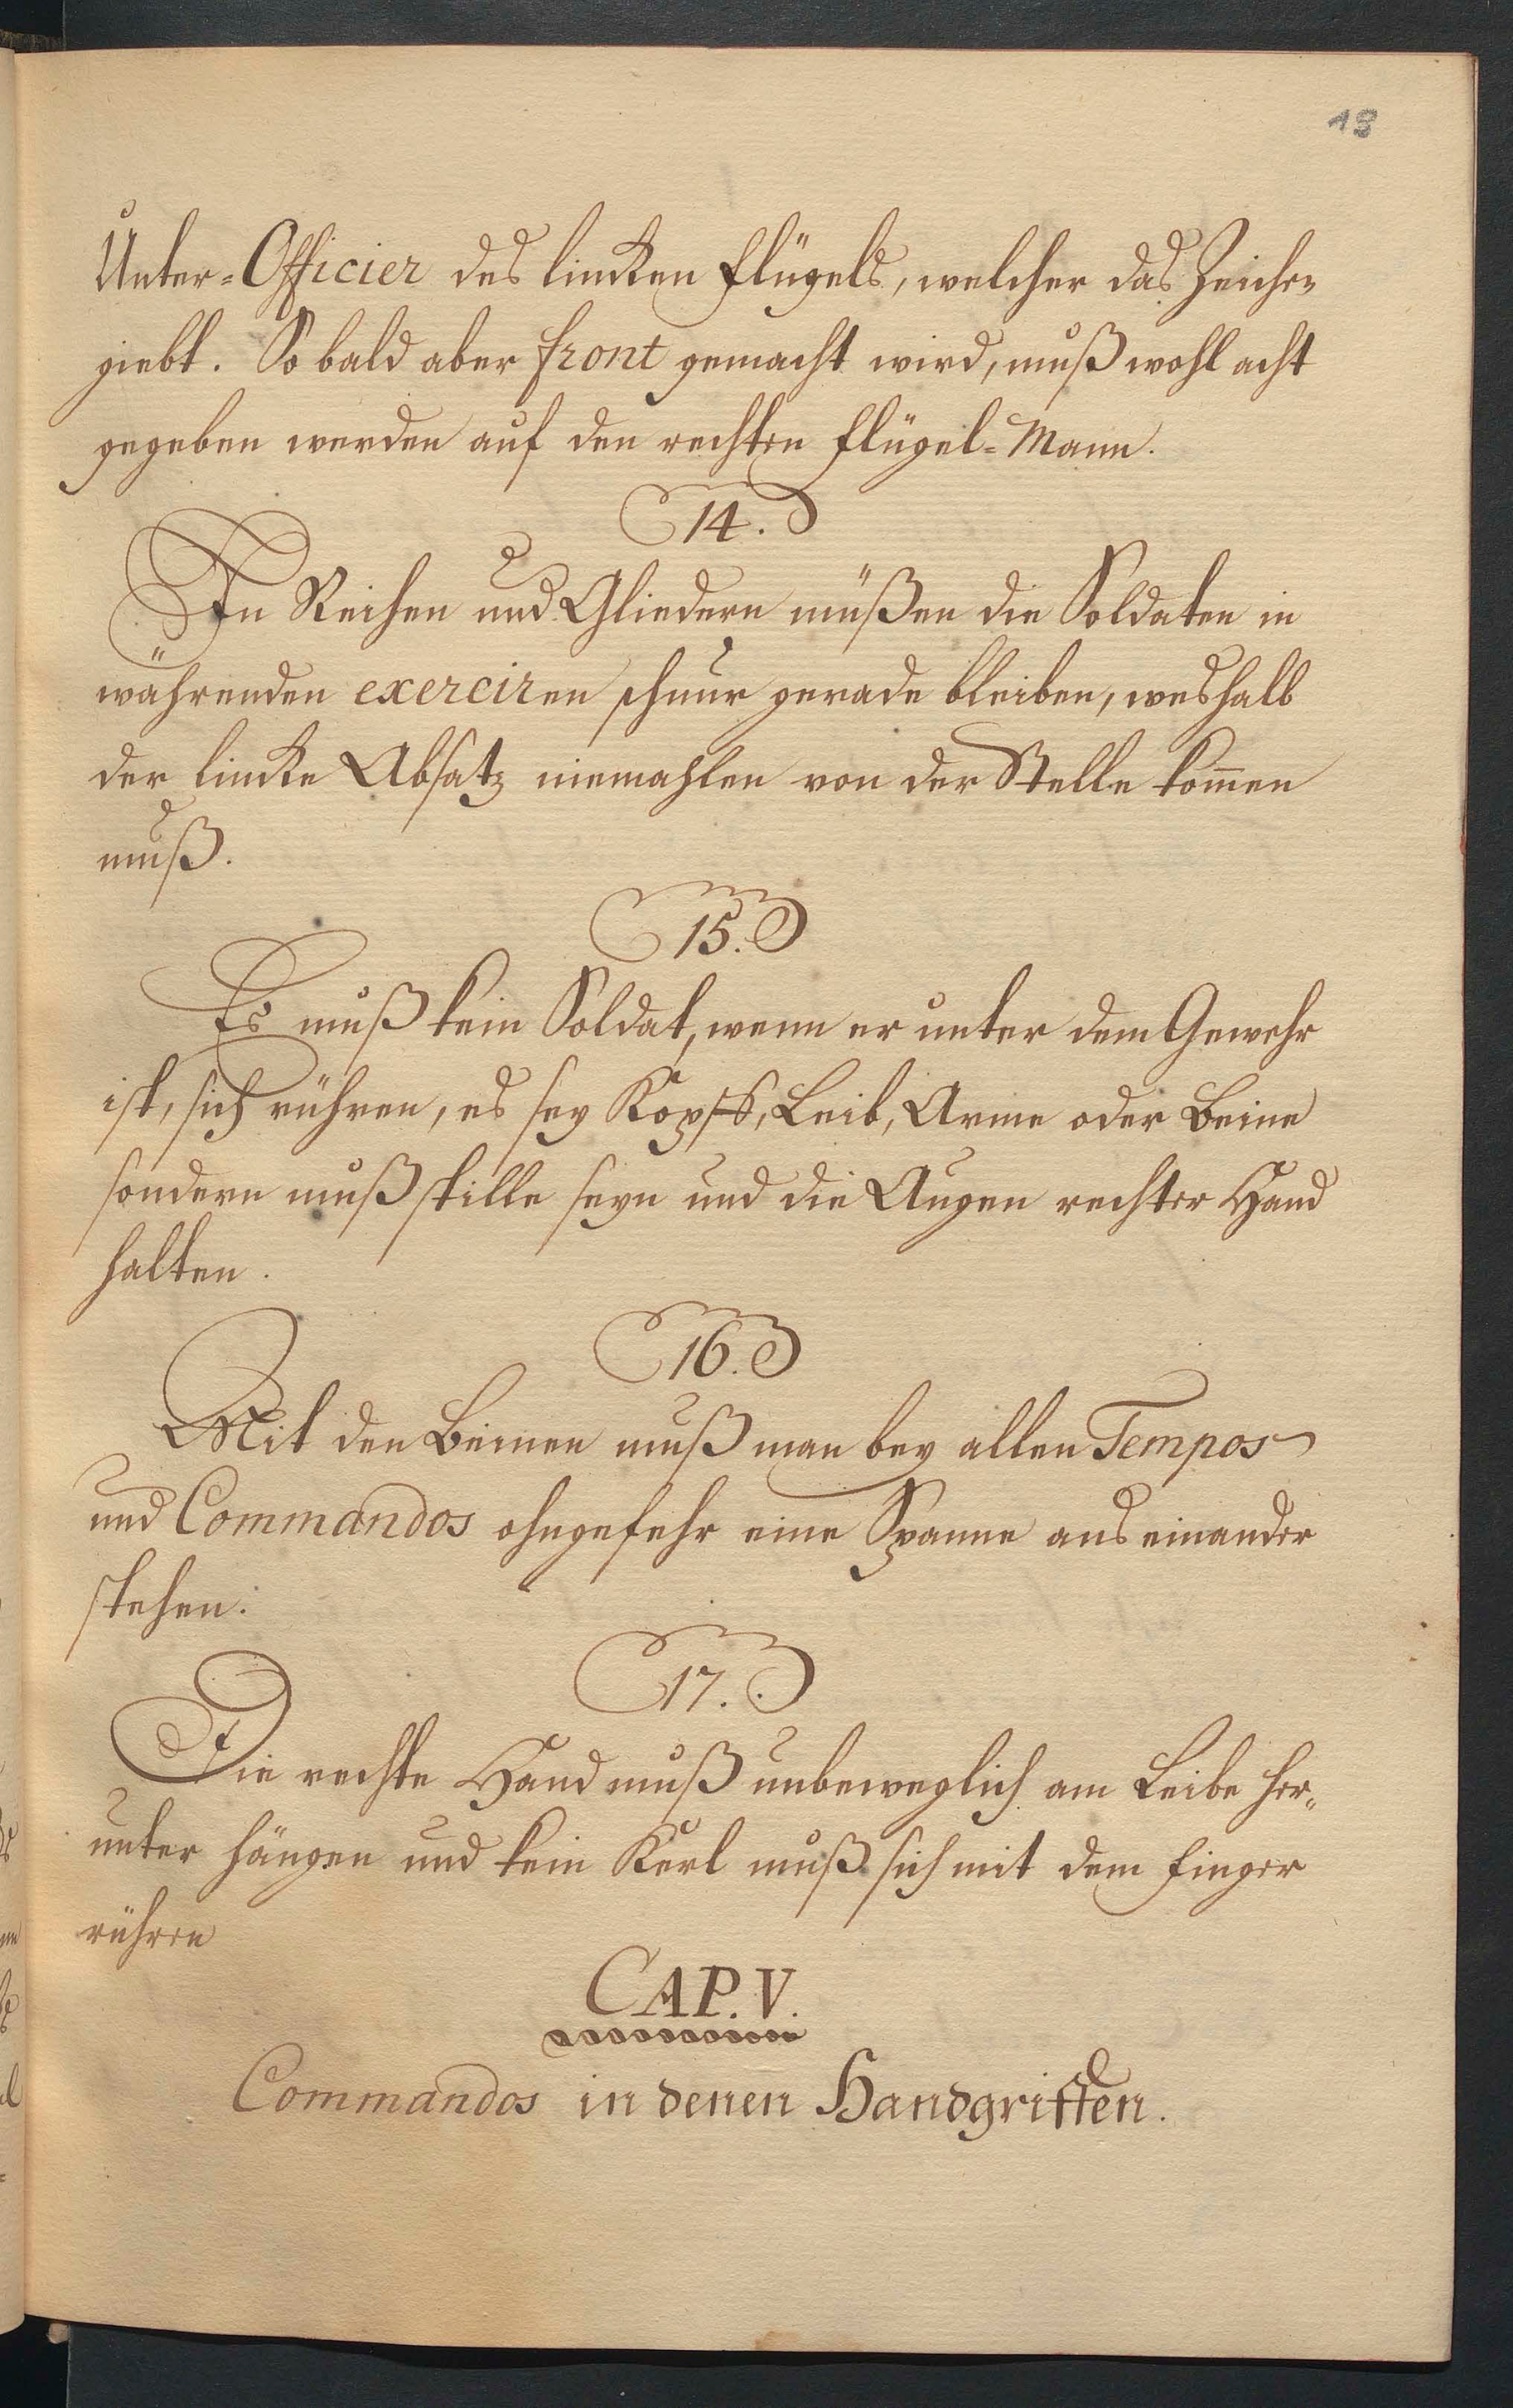 18
Unter-Officier des lincken Flügels, welcher das Zeichen
giebt. So bald aber front gemacht wird, muß wohl acht
gegeben werden auf den rechten Flügel-Mann.
14.
In Reihen und Gliedern müßen die Soldaten in
währenden exerciren schnur gerade bleiben, weshalb
der lincke Absatz niemahlen von der Stelle kom̄en
muß.
15.
Es muß kein Soldat, wenn er unter dem Gewehr
ist, sich rühren, es sey Kopff, Leib, Arme oder Beine
sondern muß stille seyn und die Augen rechter Hand
halten.
16.
Mit den Beinen muß man bey allen Tempos
und Commandos ohngefehr eine Spanne aus einander
stehen.
17.
Die rechte Hand muß unbeweglich am Leibe her-
unter hängen und kein Kerl muß sich mit dem Finger
rühren
CAP. V.
Commandos in denen Handgriffen.